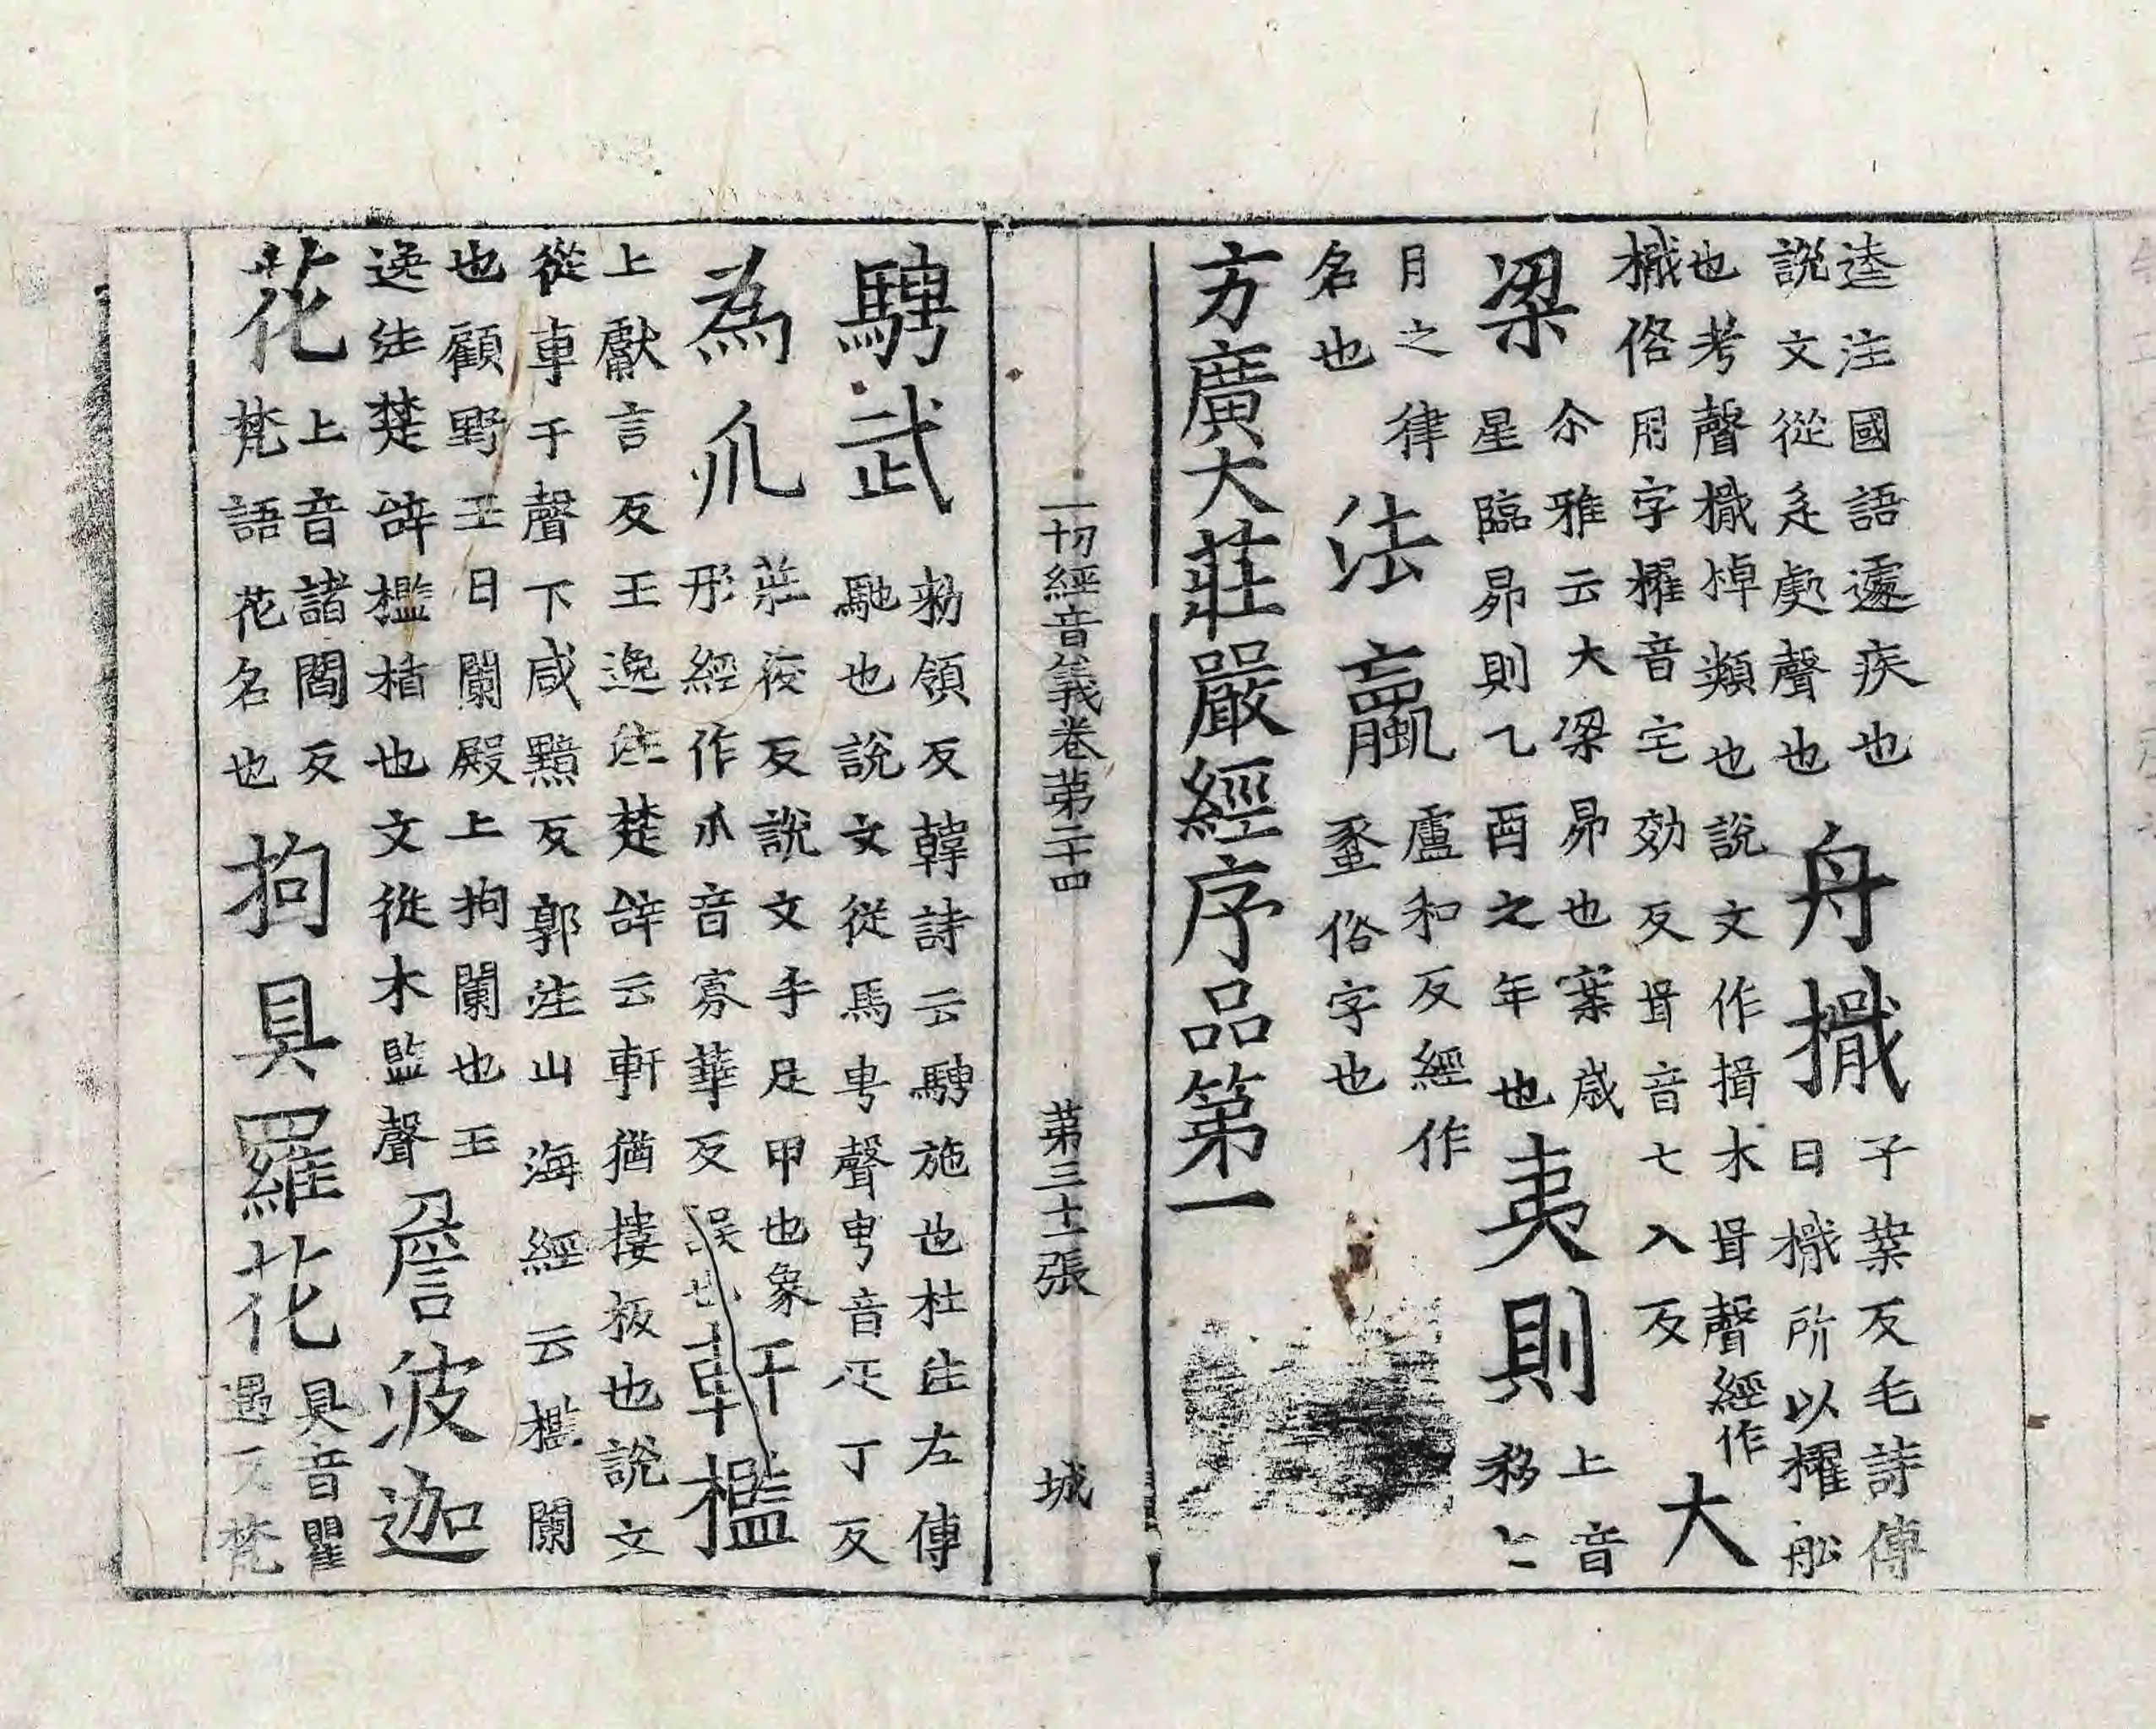 逵注國語遽疾也
說文從辵處聲也
舟檝
子葉反毛詩傳
曰檝所以櫂舩
也考聲檝棹類也說文作揖木咠聲經作
檝俗用字櫂音宅効反咠音七入反
大
梁
尒雅云大梁昴也案歲
星臨昴則乙酉之年也
夷則
上音
移七
月之律
名也
法蠃
盧和反經作
䖯俗字也
方廣大莊嚴經序品第一
一切經音義卷第二十四 第三十二張 城
騁武
勑領反韓詩云騁施也杜注左傳
馳也說文從馬甹聲甹音疋丁反
為爪
莊狡反說文手足甲也象
形經作爪音寡華反誤也
軒檻
上獻言反王逸注楚辭云軒猶摟板也說文
從車干聲下咸黤反郭注山海經云檻闌
也顧野王曰闌殿上拘闌也王
逸注楚辭檻楯也文從木監聲
詹波迦
花
上音諸閻反
梵語花名也
拘具羅花
具音瞿
遇反梵